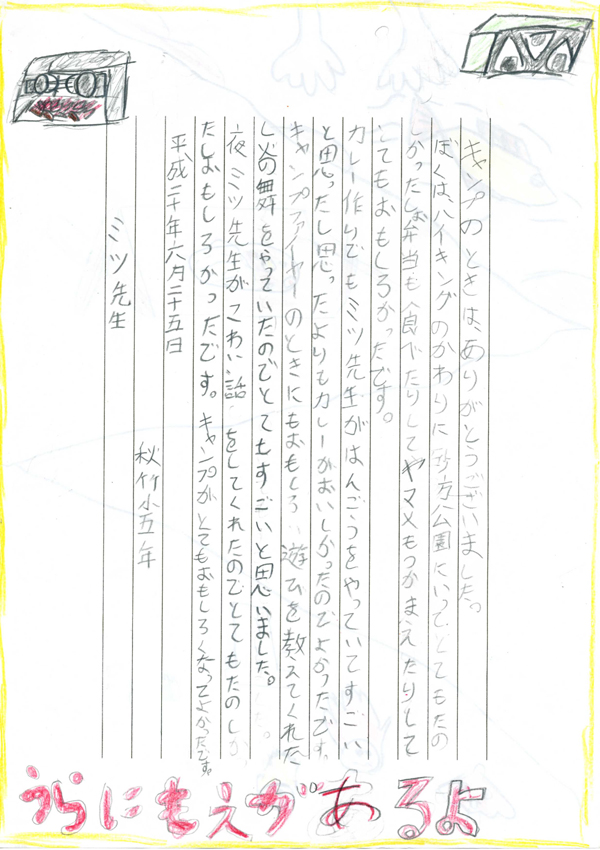 キャンプのときは、ありがとうございました。
ぼくは、ハイキングのかわりに砂方公園にいってとてもたの
しかったしお弁当も食べたりしてヤマメもつかまえたりして
とてもおもしろかったです。
カレー作りでもミツ先生がはんごうをやっていてすごい
と思ったし思ったよりもカレーがおいしかったのでよかったです。
キャンプファイヤーのときにもおもしろい遊びを教えてくれた
し火の舞をやっていたのでとてもすごいと思いました。
夜ミツ先生がこわい話をしてくれたのでとてもたのしか
たしおもしろかったです。キャンプがとてもおもしろくなってよかったです。
平成二十年六月二十五日
秋竹小五年
ミツ先生
うらにもえがあるよ